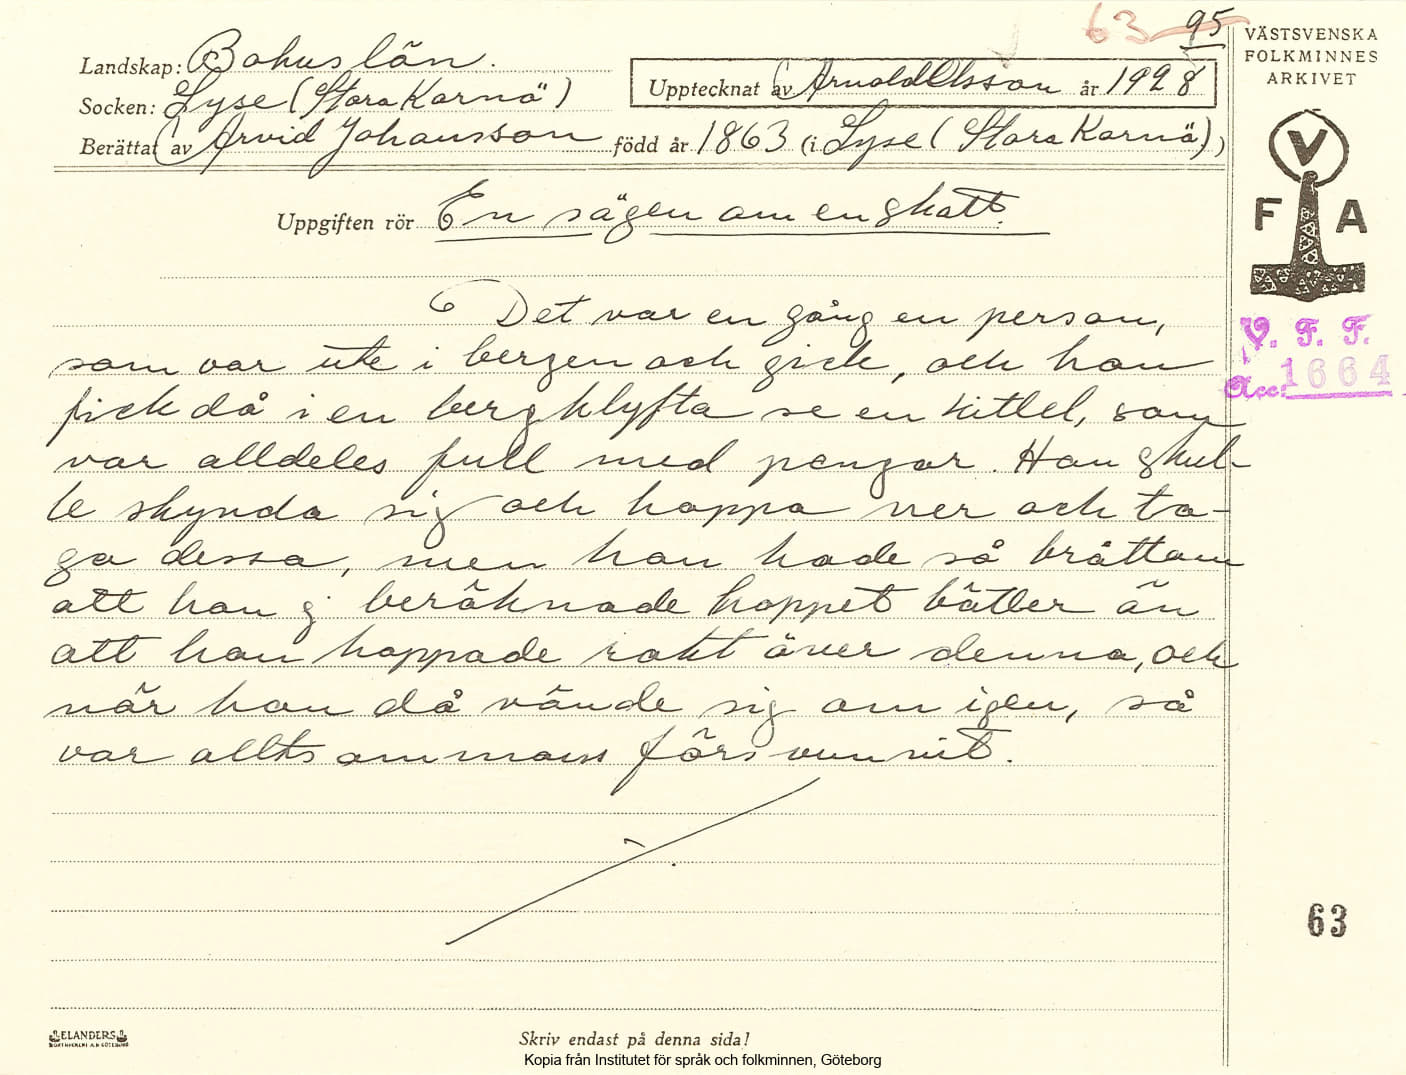 63 95
Landskap: Bohuslän.
Socken: Lyse (Stora Kornö)
Upptecknat av Arnold Olsson år 1928
Berättat av Arvid Johansson född år 1863 (i Lyse (Stora Kornö))
VÄSTSVENSKA
FOLKMINNES
ARKIVET
V
F A
V. F. F.
Acc: 1664
Uppgiften rör En sägen om en skatt.
Det var en gång en person,
som var ute i bergen och gick, och han
fick då i en bergklyfta se en kittel, som
var alldeles full med pengar. Han skul-
le skynda sig och hoppa ner och ta-
ga dessa, men han hade så bråttom
att han ej beräknade hoppet bätter än
att han hoppade rakt över denna, och
när han då vände sig om igen, så
var alltsammans försvunnit.
63
ELANDERS
Skriv endast på denna sida!
Kopia från Institutet för språk och folkminnen, Göteborg